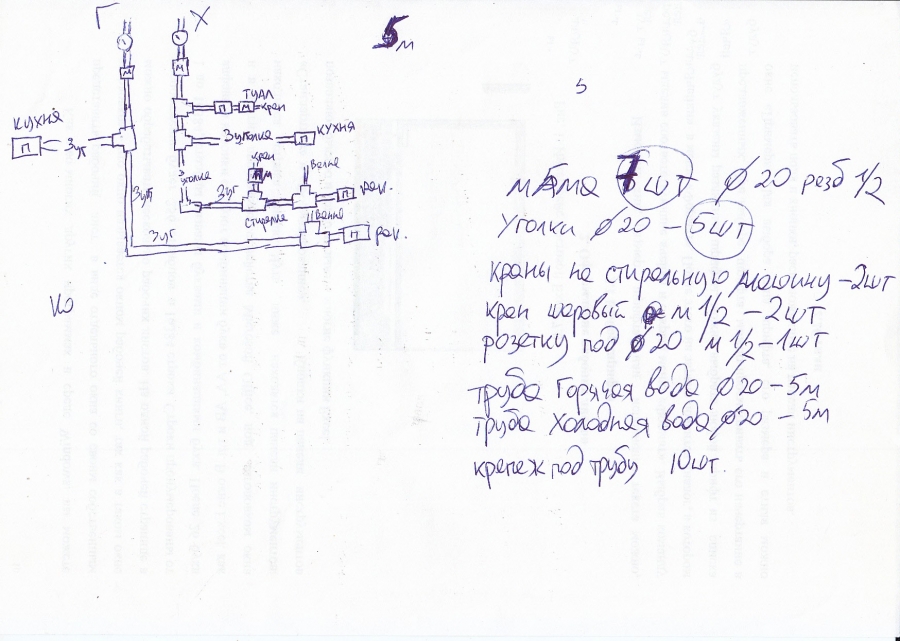 Г
Х
5 м
м
м
5
ТУАЛ
П
м
кран
КУХНЯ
П
3уг
3уголка
П
КУХНЯ
кран
м
Ванна
3 уголка
3уг
3уг
П
рак.
стиралка
Ванна
3уг
П
рак.
мАма 7 шт ⌀ 20 резб 1/2
Уголки ⌀20 – 5шт
краны на стиральную машину – 2шт
кран шаровый м 1/2 – 2шт
розетку под ⌀20 м 1/2 – 1шт
труба Горячая вода ⌀20 – 5м
труба Холодная вода ⌀20 – 5м
крепеж под трубу 10шт.